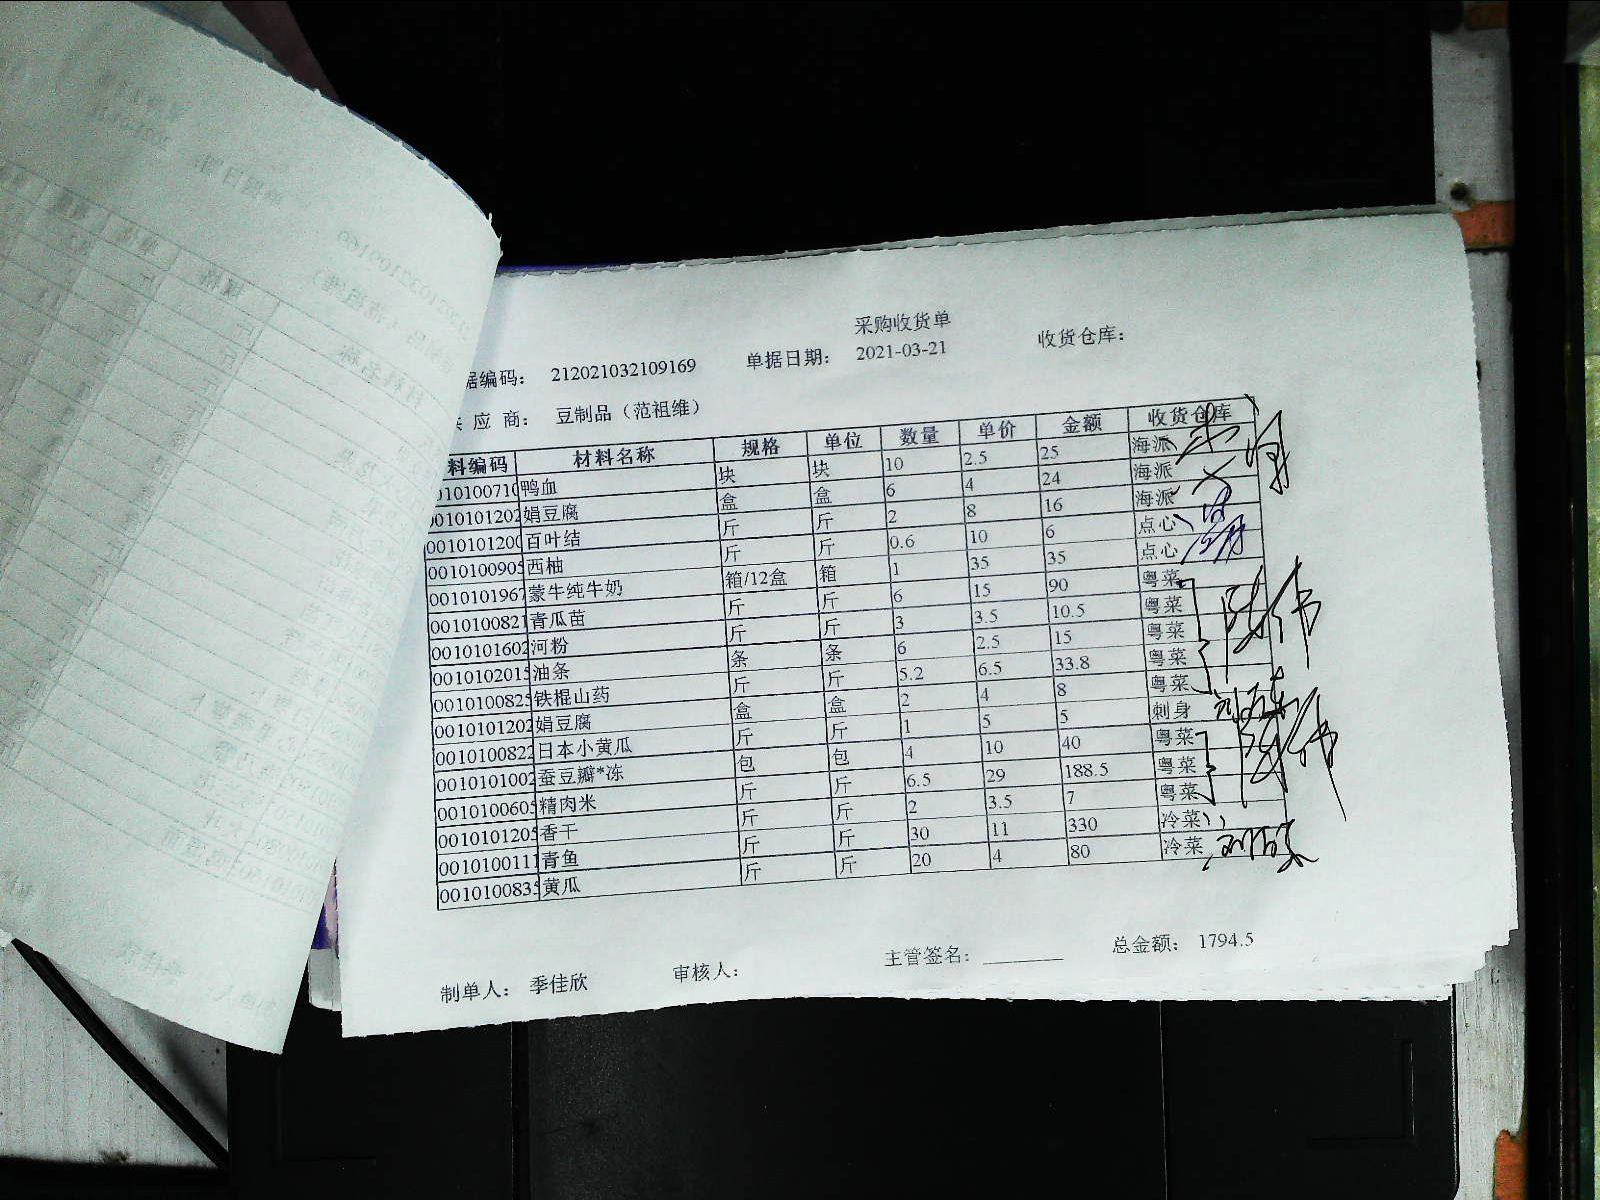 采购收货单
据编码： 212021032109169 单据日期： 2021-03-21 收货仓库：
应 商： 豆制品（范祖维）
料编码 材料名称 规格 单位 数量 单价 金额 收货仓库
鸭血 块 块 10 2.5 25 海派
0010101202 娟豆腐 盒 盒 6 4 24 海派
0010101200 百叶结 斤 斤 2 8 16 海派
0010100905 西柚 斤 斤 0.6 10 6 点心
0010101967 蒙牛纯牛奶 箱/12盒 箱 1 35 35 点心
0010100821 青瓜苗 斤 斤 6 15 90 粤菜
0010101602 河粉 斤 斤 3 3.5 10.5 粤菜
0010102015 油条 条 条 6 2.5 15 粤菜
0010100825 铁棍山药 斤 斤 5.2 6.5 33.8 粤菜
0010101202 娟豆腐 盒 盒 2 4 8 粤菜
0010100822 日本小黄瓜 斤 斤 1 5 5 刺身
0010101002 蚕豆瓣*冻 包 包 4 10 40 粤菜
0010100605 精肉米 斤 斤 6.5 29 188.5 粤菜
0010101205 香干 斤 斤 2 3.5 7 粤菜
0010100111 青鱼 斤 斤 30 11 330 冷菜
0010100835 黄瓜 斤 斤 20 4 80 冷菜
制单人： 季佳欣 审核人： 主管签名： 总金额： 1794.5